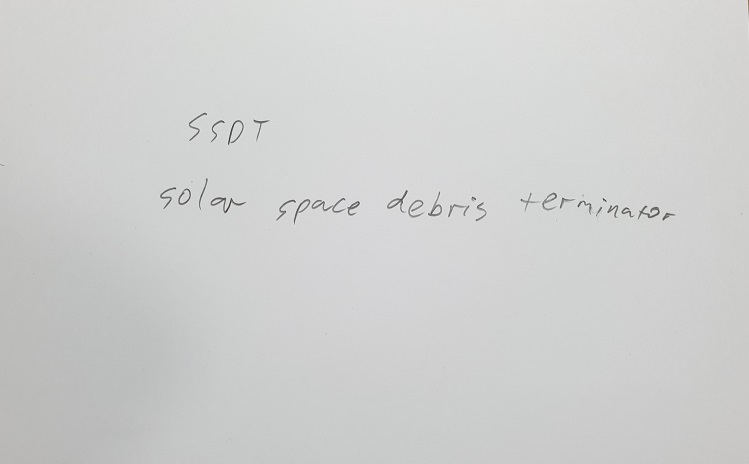 SSDT
solar space debris terminator